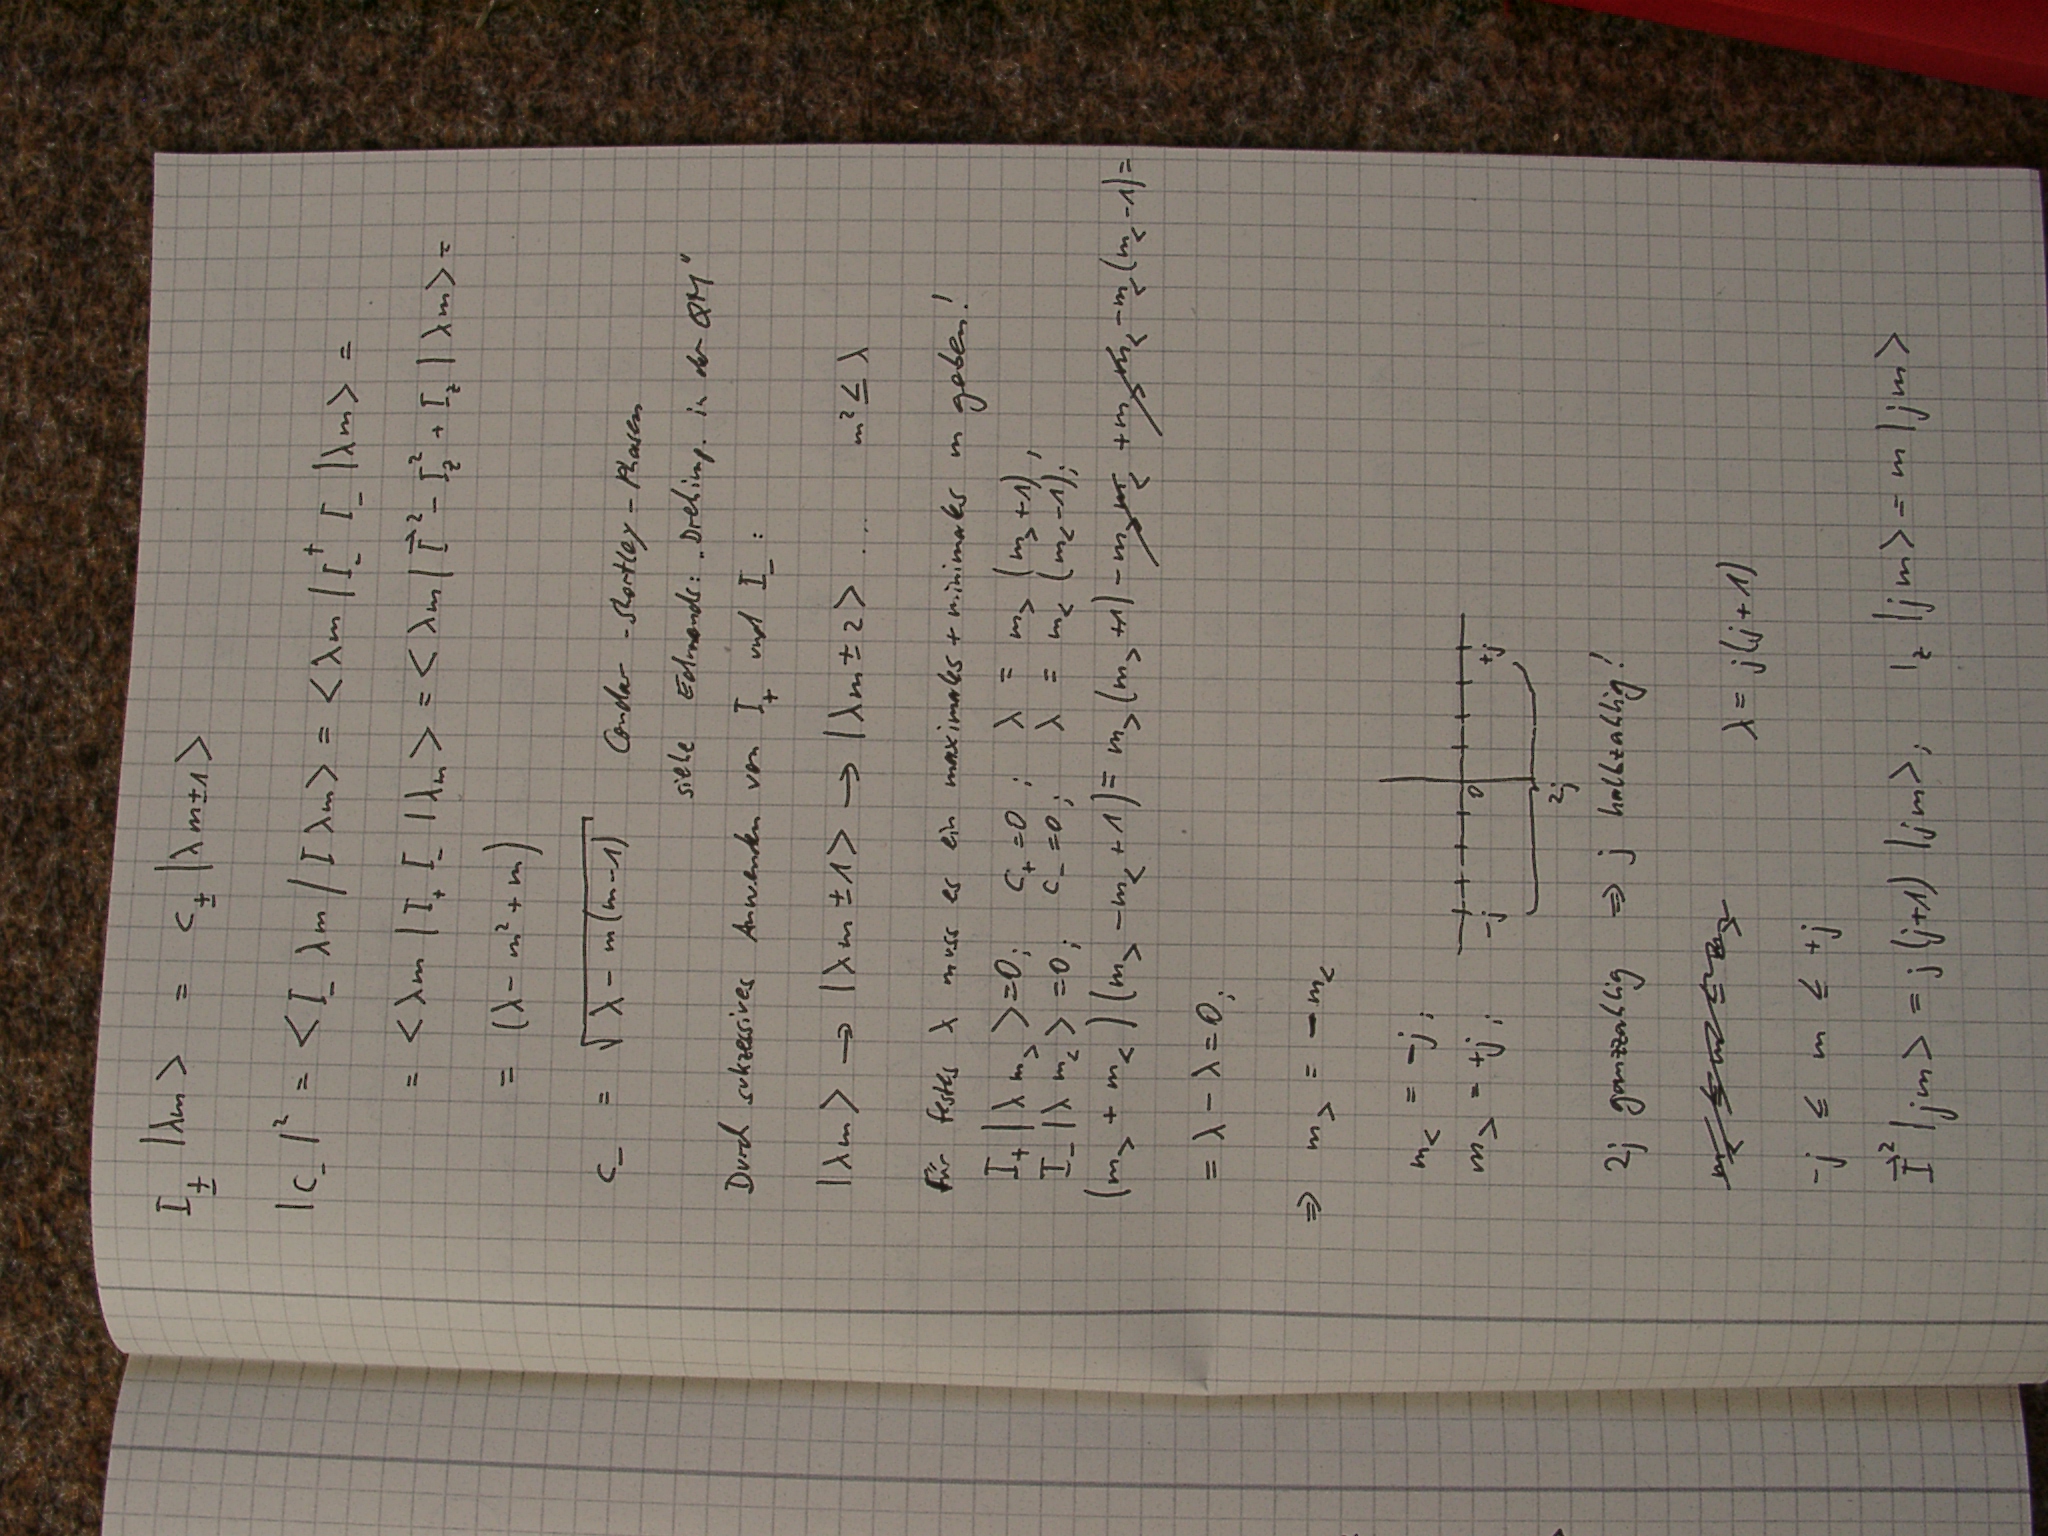 I± |λm> = c± |λ m±1>
|c_|² = <I_ λm | I λm> = <λm | I_⁺ I_ |λm> =
= <λm | I₊ I_ |λm> = <λm | I⃗² - I_z² + I_z | λm> =
= (λ - m² + m)
c_ = √(λ - m(m-1)) Condar-Shortley-Phasen
siehe Edmonds: „Drehimp. in der QM"
Durch sukzessives Anwenden von I₊ und I_:
|λm> → |λ m±1> → |λ m±2> ... m² ≤ λ
Für festes λ muss es ein maximales + minimales m geben!
I₊|λ m_>> = 0; c₊ = 0; λ = m_> (m_> +1);
I_|λ m_<> = 0; c_ = 0; λ = m_< (m_< -1);
(m_> + m_<)(m_> - m_< + 1) = m_>(m_> +1) - m_> m_< + m_> m_< - m_<(m_< -1) =
= λ - λ = 0;
⇒ m_> = - m_<
m_< = -j;
m_> = +j;
-j 0 +j
2j
2j ganzzahlig ⇒ j halbzahlig!
m_< ≤ m ≤ m_> λ = j(j+1)
-j ≤ m ≤ +j
I⃗² |jm> = j(j+1) |jm>; I_z |jm> = m |jm>